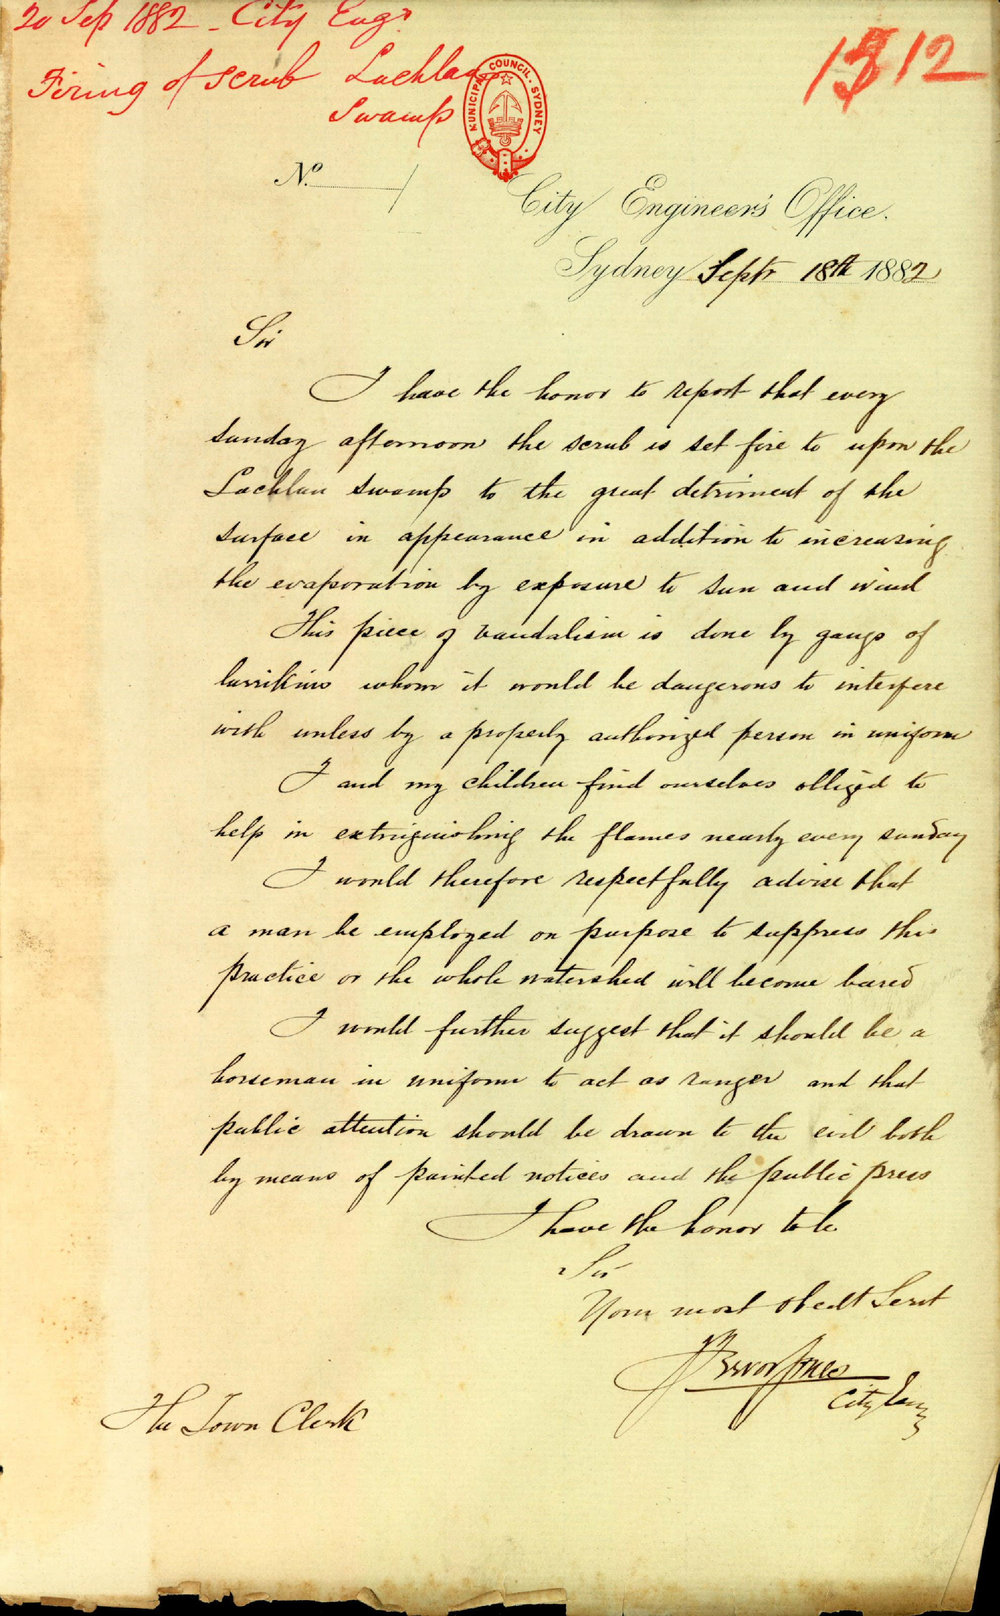 20 Sep 1882 - City Engr
Firing of scrub Lachlan
Swamp
1312
MUNICIPAL COUNCIL. SYDNEY
No.
City Engineer's Office.
Sydney Septr 18th 1882
Sir
I have the honor to report that every
sunday afternoon the scrub is set fire to upon the
Lachlan swamp to the great detriment of the
surface in appearance in addition to increasing
the evaporation by exposure to sun and wind
This piece of vandalism is done by gangs of
larrikins whom it would be dangerous to interfere
with unless by a properly authorized person in uniform
I and my children find ourselves obliged to
help in extinguishing the flames nearly every sunday
I would therefore respectfully advise that
a man be employed on purpose to suppress this
practice or the whole watershed will become bared
I would further suggest that it should be a
horseman in uniform to act as ranger and that
public attention should be drawn to the evil both
by means of painted notices and the public press
I have the honor to be
Sir
Your most obedt Servt
Trevor Jones
City Engr
The Town Clerk